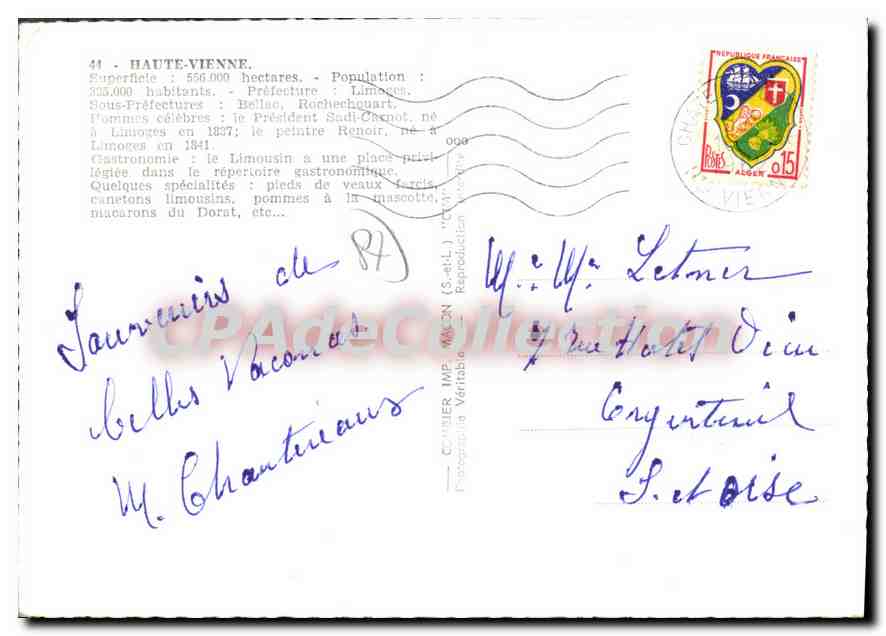 44 - HAUTE-VIENNE.
Superficie : 556.000 hectares. - Population :
325.000 habitants. - Préfecture : Limoges.
Sous-Préfectures : Bellac, Rochechouart.
Hommes célèbres : le Président Sadi-Carnot, né
à Limoges en 1837; le peintre Renoir, né à
Limoges en 1841.
Gastronomie : le Limousin a une place privi-
légiée dans le répertoire gastronomique.
Quelques spécialités : pieds de veaux farcis,
canetons limousins, pommes à la mascotte,
macarons du Dorat, etc...
87
Souvenirs de
belles Vacances
M. Chantereaux
COMBIER IMP. MACON (S.-et-L.) "CIM"
Photographie Véritable Reproduction interdite
REPUBLIQUE FRANÇAISE
POSTES
ALGER
0,15
VIENNE
Mr. Me
rue Hotel
Argenteuil
S. et Oise
CPAdeCollection